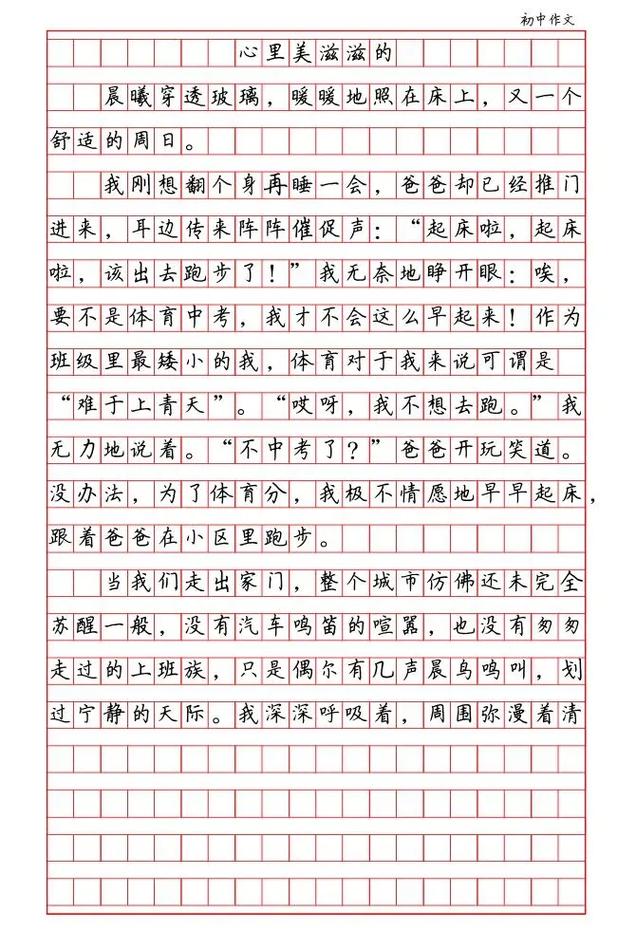 初中作文
心里美滋滋的
晨曦穿透玻璃，暖暖地照在床上，又一个
舒适的周日。
我刚想翻个身再睡一会，爸爸却已经推门
进来，耳边传来阵阵催促声：“起床啦，起床
啦，该出去跑步了！”我无奈地睁开眼：唉，
要不是体育中考，我才不会这么早起来！作为
班级里最矮小的我，体育对于我来说可谓是
“难于上青天”。“哎呀，我不想去跑。”我
无力地说着。“不中考了？”爸爸开玩笑道。
没办法，为了体育分，我极不情愿地早早起床，
跟着爸爸在小区里跑步。
当我们走出家门，整个城市仿佛还未完全
苏醒一般，没有汽车鸣笛的喧嚣，也没有匆匆
走过的上班族，只是偶尔有几声晨鸟鸣叫，划
过宁静的天际。我深深呼吸着，周围弥漫着清